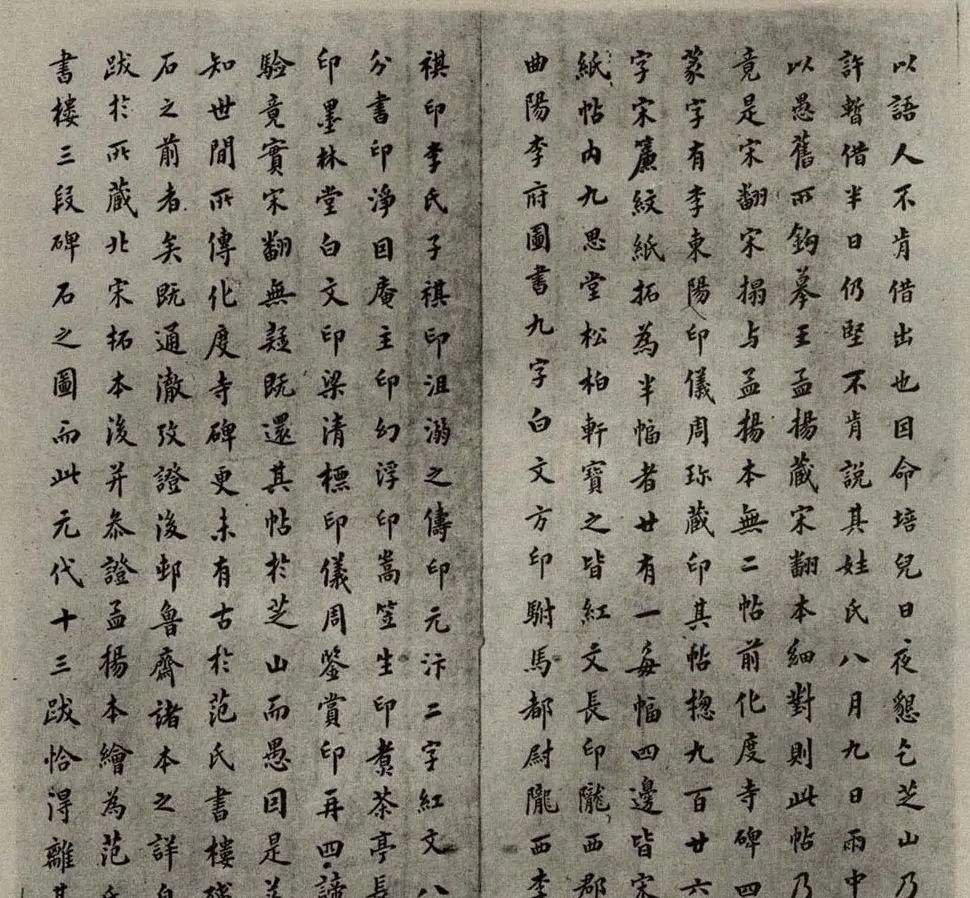 以語人不肯借出也因命培兒日夜懇乞芝山乃
許暫借半日仍堅不肯說其姓氏八月九日雨中
以愚舊所鉤摹王孟揚藏宋翻本細對則此帖乃
竟是宋翻宋搨与孟揚本無二帖前化度寺碑四
篆字有李東陽印儀周珎藏印其帖摠九百廿六
字宋簾紋紙拓為半幅者廿有一每幅四邊皆宋
紙帖內九思堂松柏軒寶之皆紅文長印隴西郡
曲陽李府圖書九字白文方印駙馬都尉隴西李
祺印李氏子祺印沮溺之儔印元汴二字紅文八
分書印淨因庵主印幻浮印嵩笠生印煑茶亭長
印墨林堂白文印梁清標印儀周鑒賞印再四諦
驗竟實宋翻無疑既還其帖於芝山而愚因是益
知世間所傳化度寺碑更未有古於范氏書樓殘
石之前者矣既通澈攷證後邨魯齋諸本之詳自
跋於所藏北宋拓本後并叅證孟揚本繪為范氏
書樓三段碑石之圖而此元代十三跋恰得離其